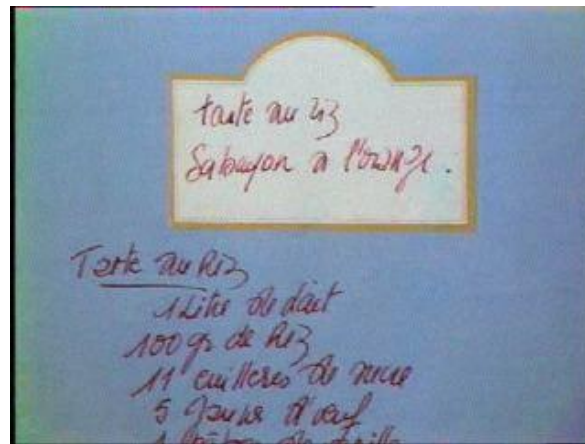 tarte au riz
Sabayon à l'orange.
Tarte au Riz
1 Litre de lait
100 gr de Riz
11 cuilleres de sucre
5 jaune d'œuf
1